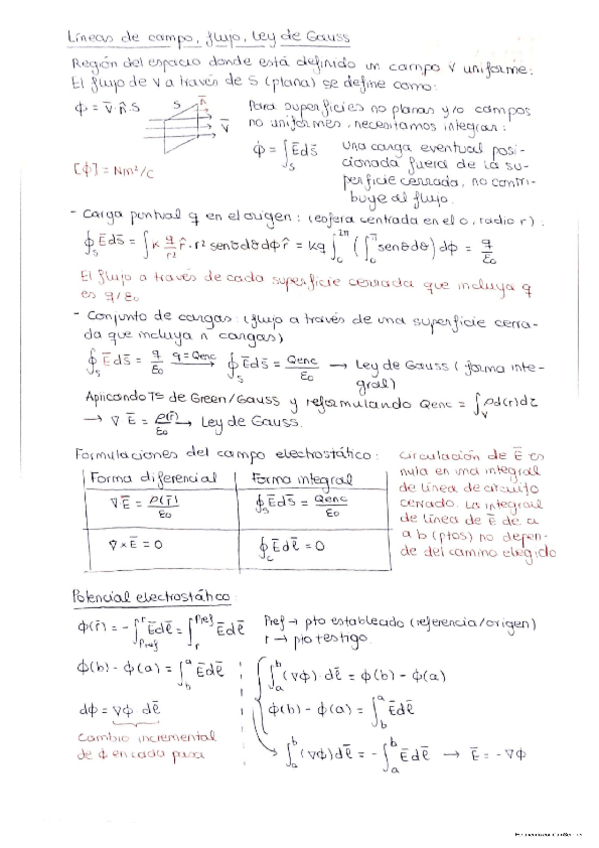 Líneas de campo, flujo, Ley de Gauss
Región del espacio donde está definido un campo v uniforme:
El flujo de v a través de S (plana) se define como:
ϕ = v̄·n̂·S
S
n̄
v̄
Para superficies no planas y/o campos
no uniformes, necesitamos integrar:
[ϕ] = Nm²/C
ϕ = ∫_S Ēds̄
una carga eventual posi-
cionada fuera de la su-
perficie cerrada, no contri-
buye al flujo.
- Carga puntual q en el origen: (esfera centrada en el 0, radio r):
∮_S Ēds̄ = ∫ K q/r² r̂ · r² senθdθdϕ r̂ = kq ∫_0^2π (∫_0^π senθdθ) dϕ = q/ε₀
El flujo a través de cada superficie cerrada que incluya q
es q/ε₀
- Conjunto de cargas: (flujo a través de una superficie cerra-
da que incluya n cargas)
∮_S Ēds̄ = q/ε₀ q=Qenc → ∮_S Ēds̄ = Qenc/ε₀ → Ley de Gauss (forma inte-
gral)
Aplicando Tª de Green/Gauss y reformulando Qenc = ∫_V ρd(r)dτ
→ ∇ Ē = ρ(r̄)/ε₀ → Ley de Gauss.
Formulaciones del campo electrostático:
Forma diferencial | Forma integral
∇Ē = ρ(r̄)/ε₀ | ∮_S Ēds̄ = Qenc/ε₀
∇×Ē = 0 | ∮_C Ēdℓ̄ = 0
Circulación de Ē es
nula en una integral
de línea de circuito
cerrado. La integral
de línea de Ē de a
a b (ptos) no depen-
de del camino elegido
Potencial electrostático:
ϕ(r̄) = -∫_Pref^r Ēdℓ̄ = ∫_r^Pref Ēdℓ̄
Pref → pto establecido (referencia/origen)
r → pto testigo.
ϕ(b) - ϕ(a) = ∫_b^a Ēdℓ̄
dϕ = ∇ϕ dℓ̄
Cambio incremental
de ϕ en cada paso
∫_a^b (∇ϕ)·dℓ̄ = ϕ(b) - ϕ(a)
ϕ(b) - ϕ(a) = ∫_b^a Ēdℓ̄
∫_a^b (∇ϕ)dℓ̄ = -∫_a^b Ēdℓ̄ → Ē = -∇ϕ